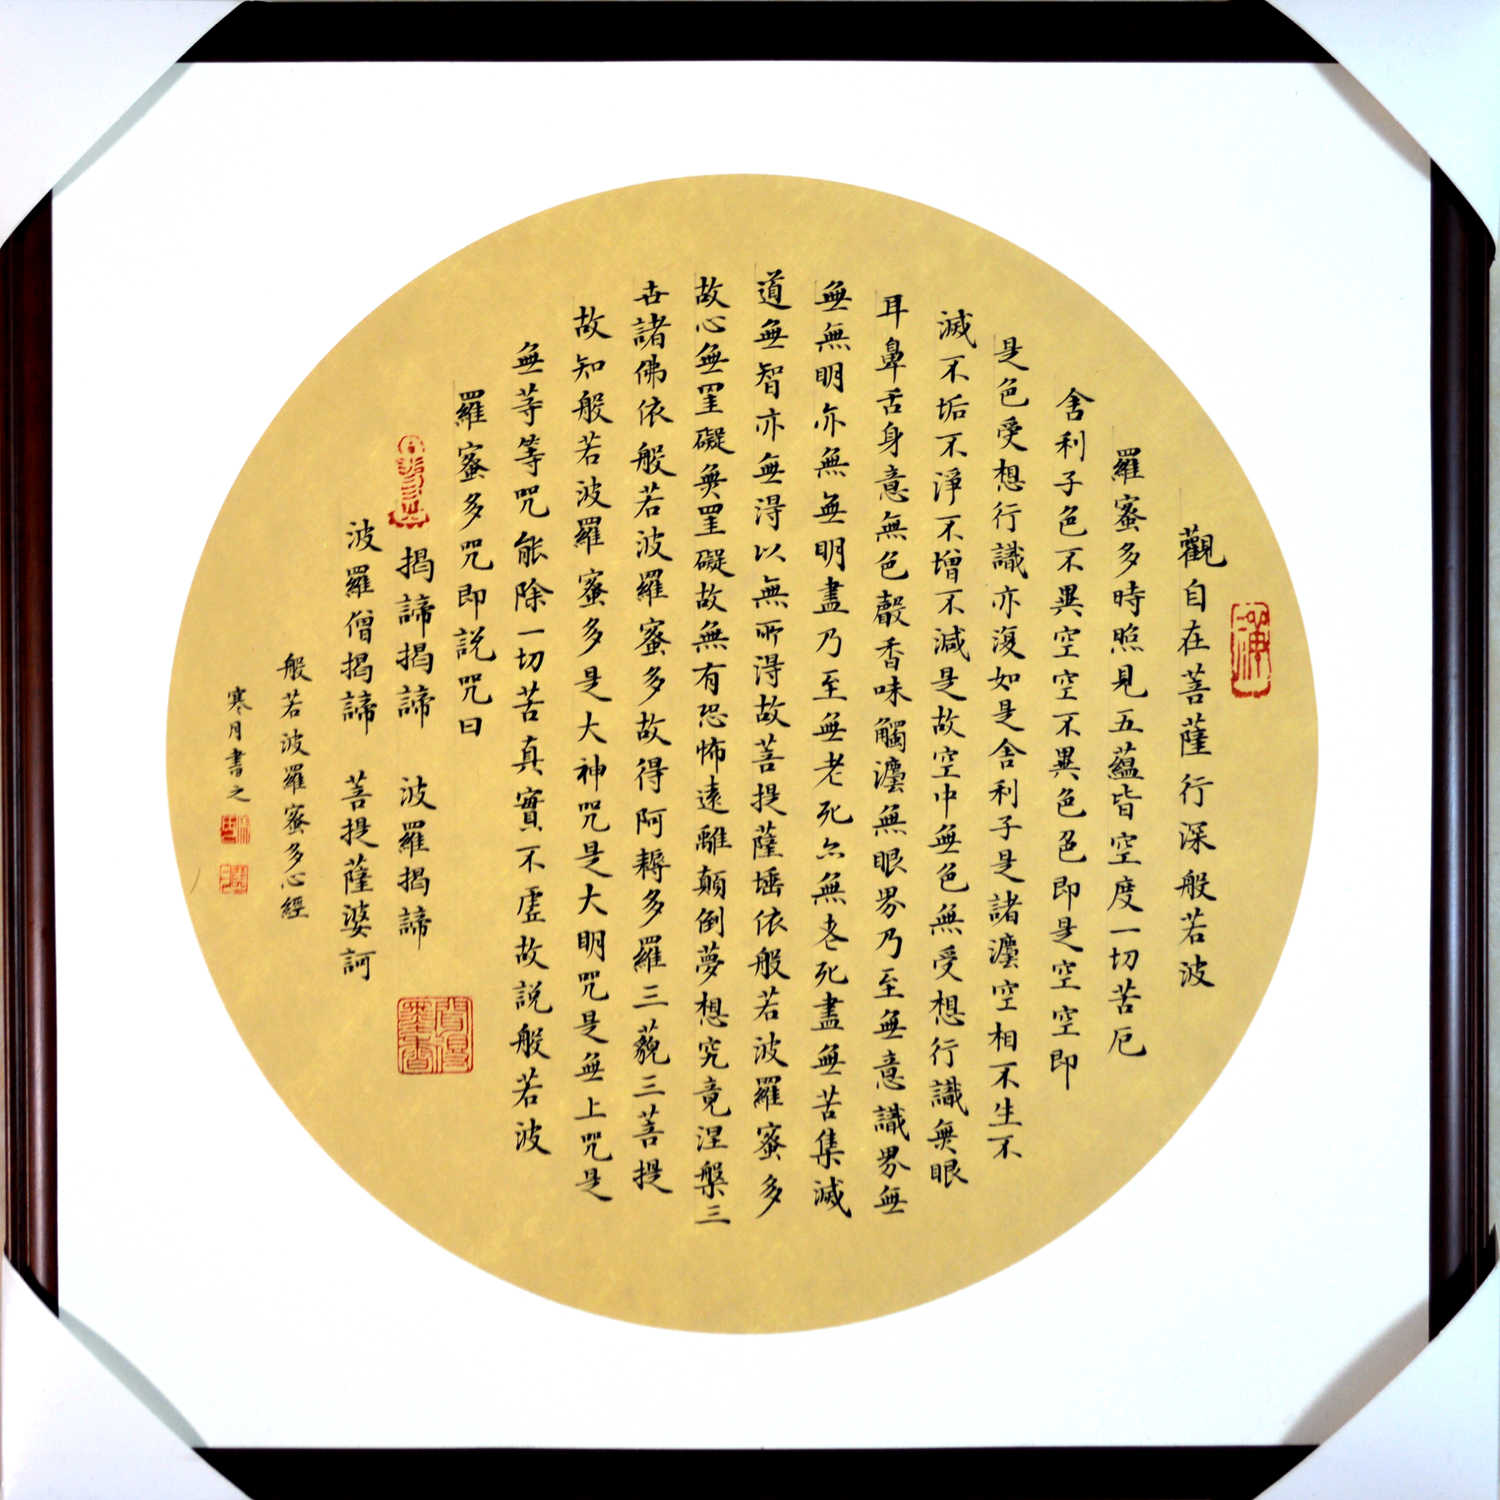 觀自在菩薩行深般若波
羅蜜多時照見五蘊皆空度一切苦厄
舍利子色不異空空不異色色即是空空即
是色受想行識亦復如是舍利子是諸灋空相不生不
滅不垢不淨不增不減是故空中無色無受想行識無眼
耳鼻舌身意無色聲香味觸灋無眼界乃至無意識界無
無無明亦無無明盡乃至無老死亦無老死盡無苦集滅
道無智亦無得以無所得故菩提薩埵依般若波羅蜜多
故心無罣礙無罣礙故無有恐怖遠離顛倒夢想究竟涅槃三
世諸佛依般若波羅蜜多故得阿耨多羅三藐三菩提
故知般若波羅蜜多是大神咒是大明咒是無上咒是
無等等咒能除一切苦真實不虛故說般若波
羅蜜多咒即說咒曰
揭諦揭諦 波羅揭諦
波羅僧揭諦 菩提薩婆訶
般若波羅蜜多心經
寒月書之